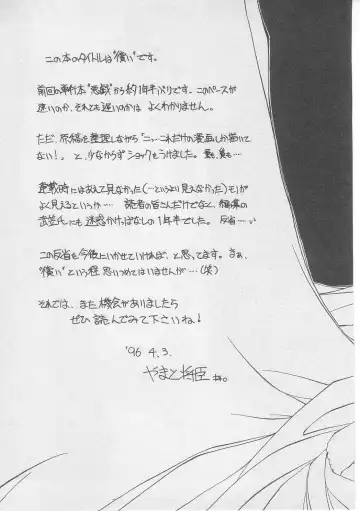 この本のタイトルは"償い"です。
前回の単行本"悪戯"から約1年半ぶりです。このペースが
速いのか、それとも遅いのかは よくわかりません。
ただ、原稿を整理しながら「ニッ…これだけの漫画しか描いて
ない!」と、少なからずショックをうけました。
連載時にはあえて見なかった(…というより見えなかった)モノが
よく見えるというか… 読者の皆さんだけでなく、編集の
にも迷惑かけっぱなしの1年半でした。反省…
この反省を今後にいかせていければ、と思ってます。まぁ、
"償い"という程 思いつめてはいませんが…(笑)
それでは、また機会がありましたら
ぜひ 読んでみて下さいね!
'96 4.3.
やまと